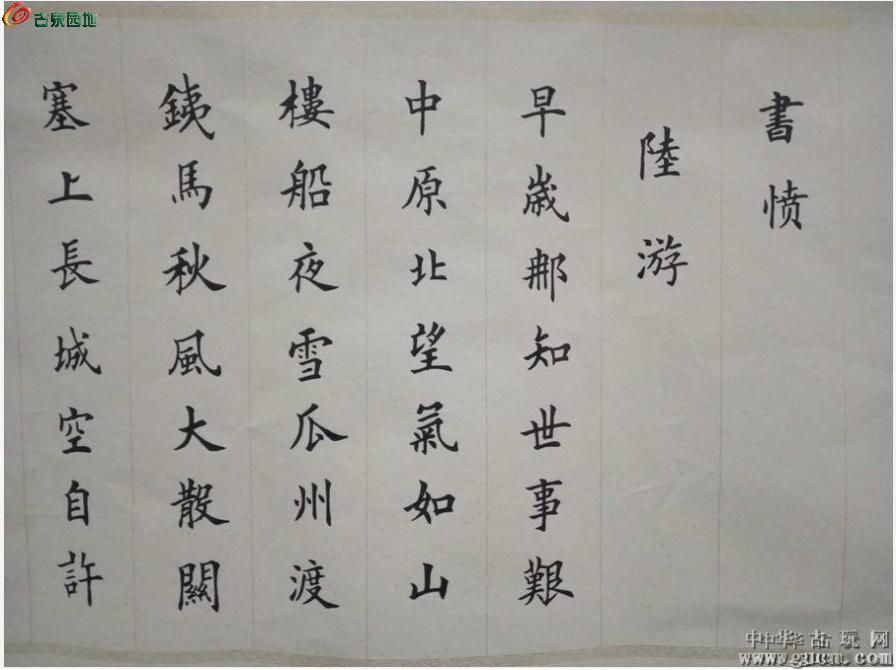 古泉园地
書愤
陸游
早歲那知世事艱
中原北望氣如山
樓船夜雪瓜州渡
銕馬秋風大散關
塞上長城空自許
中华古玩网
www.gucn.com